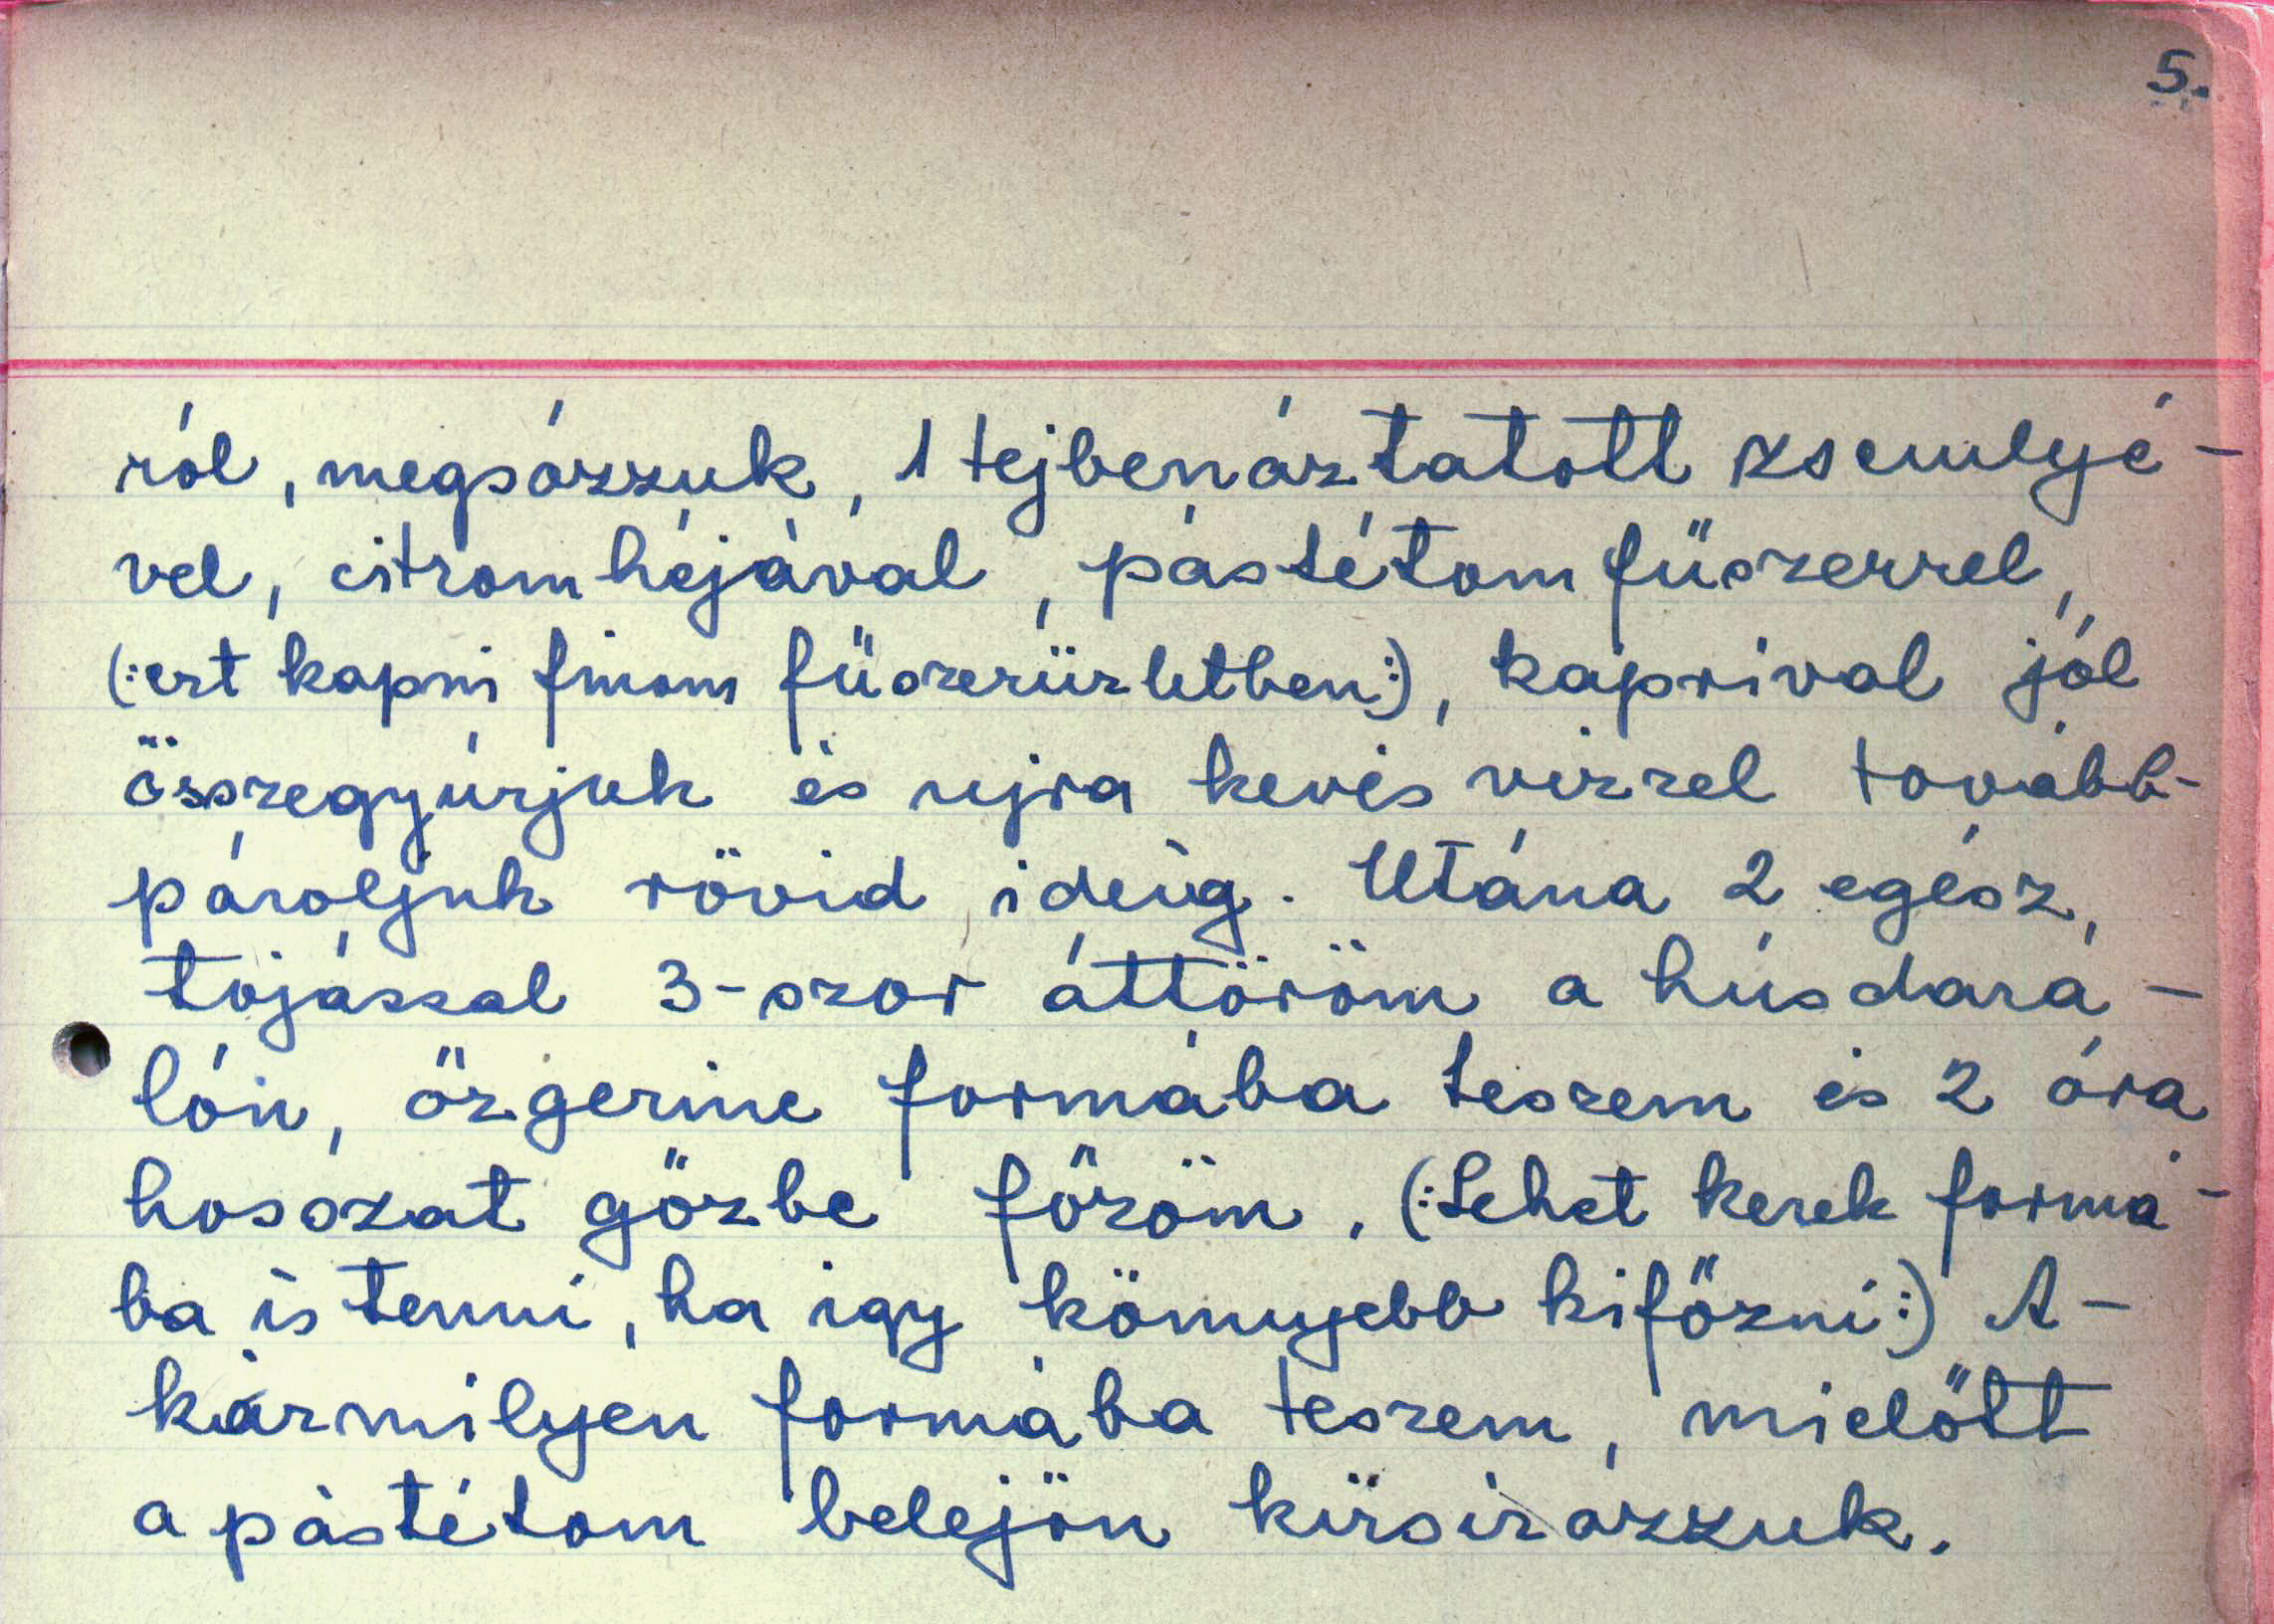 5.
ról, megsózzuk, 1 tejbenáztatott zsemlyé-
vel, citromhéjával, pástétomfűszerrel,
(:ezt kapni finom fűszerüzletben:), káprival jól
összegyúrjuk és ujra kevés vizzel tovább-
pároljuk rövid ideig. Utána 2 egész
tojással 3-szor áttöröm a húsdará-
lón, őzgerinc formába teszem és 2 óra
hosszat gőzbe főzöm. (:Lehet kerek formá-
ba is tenni, ha igy könnyebb kifőzni:) A-
kármilyen formába teszem, mielőtt
a pástétom belejön kizsirazzuk.